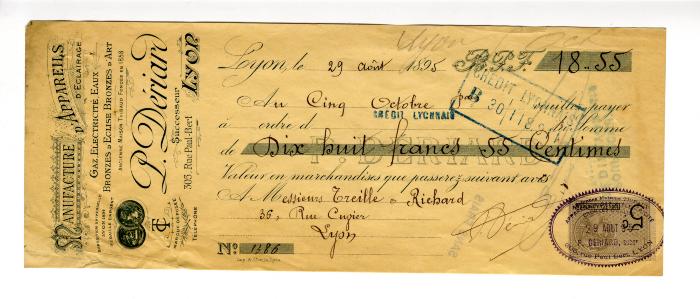 MANUFACTURE D'APPAREILS
D'ECLAIRAGE
GAZ, ELECTRICITÉ, EAUX
BRONZES D'EGLISE, BRONZES D'ART
ANCIENNE MAISON THIBAUD FONDÉE EN 1838
P. Dériard
Successeur
305, Rue Paul-Bert
LYON
TÉLÉPHONE
Lyon
Lyon, le 29 Août 1895 B.P.F. 18..55
CREDIT LYONNAIS
B 30,118
Au Cinq Octobre prox veuillez payer
à ordre d CRÉDIT LYONNAIS la somme
P. DERIARD
de Dix huit francs 55 Centimes
Valeur en marchandises que passerez suivant avis
A Messieurs Treille & Richard
35, Rue Cuvier
Lyon
No 1386
5c
29 AOUT 95
P. DERIARD, SUCCR
305, Rue Paul Bert, LYON